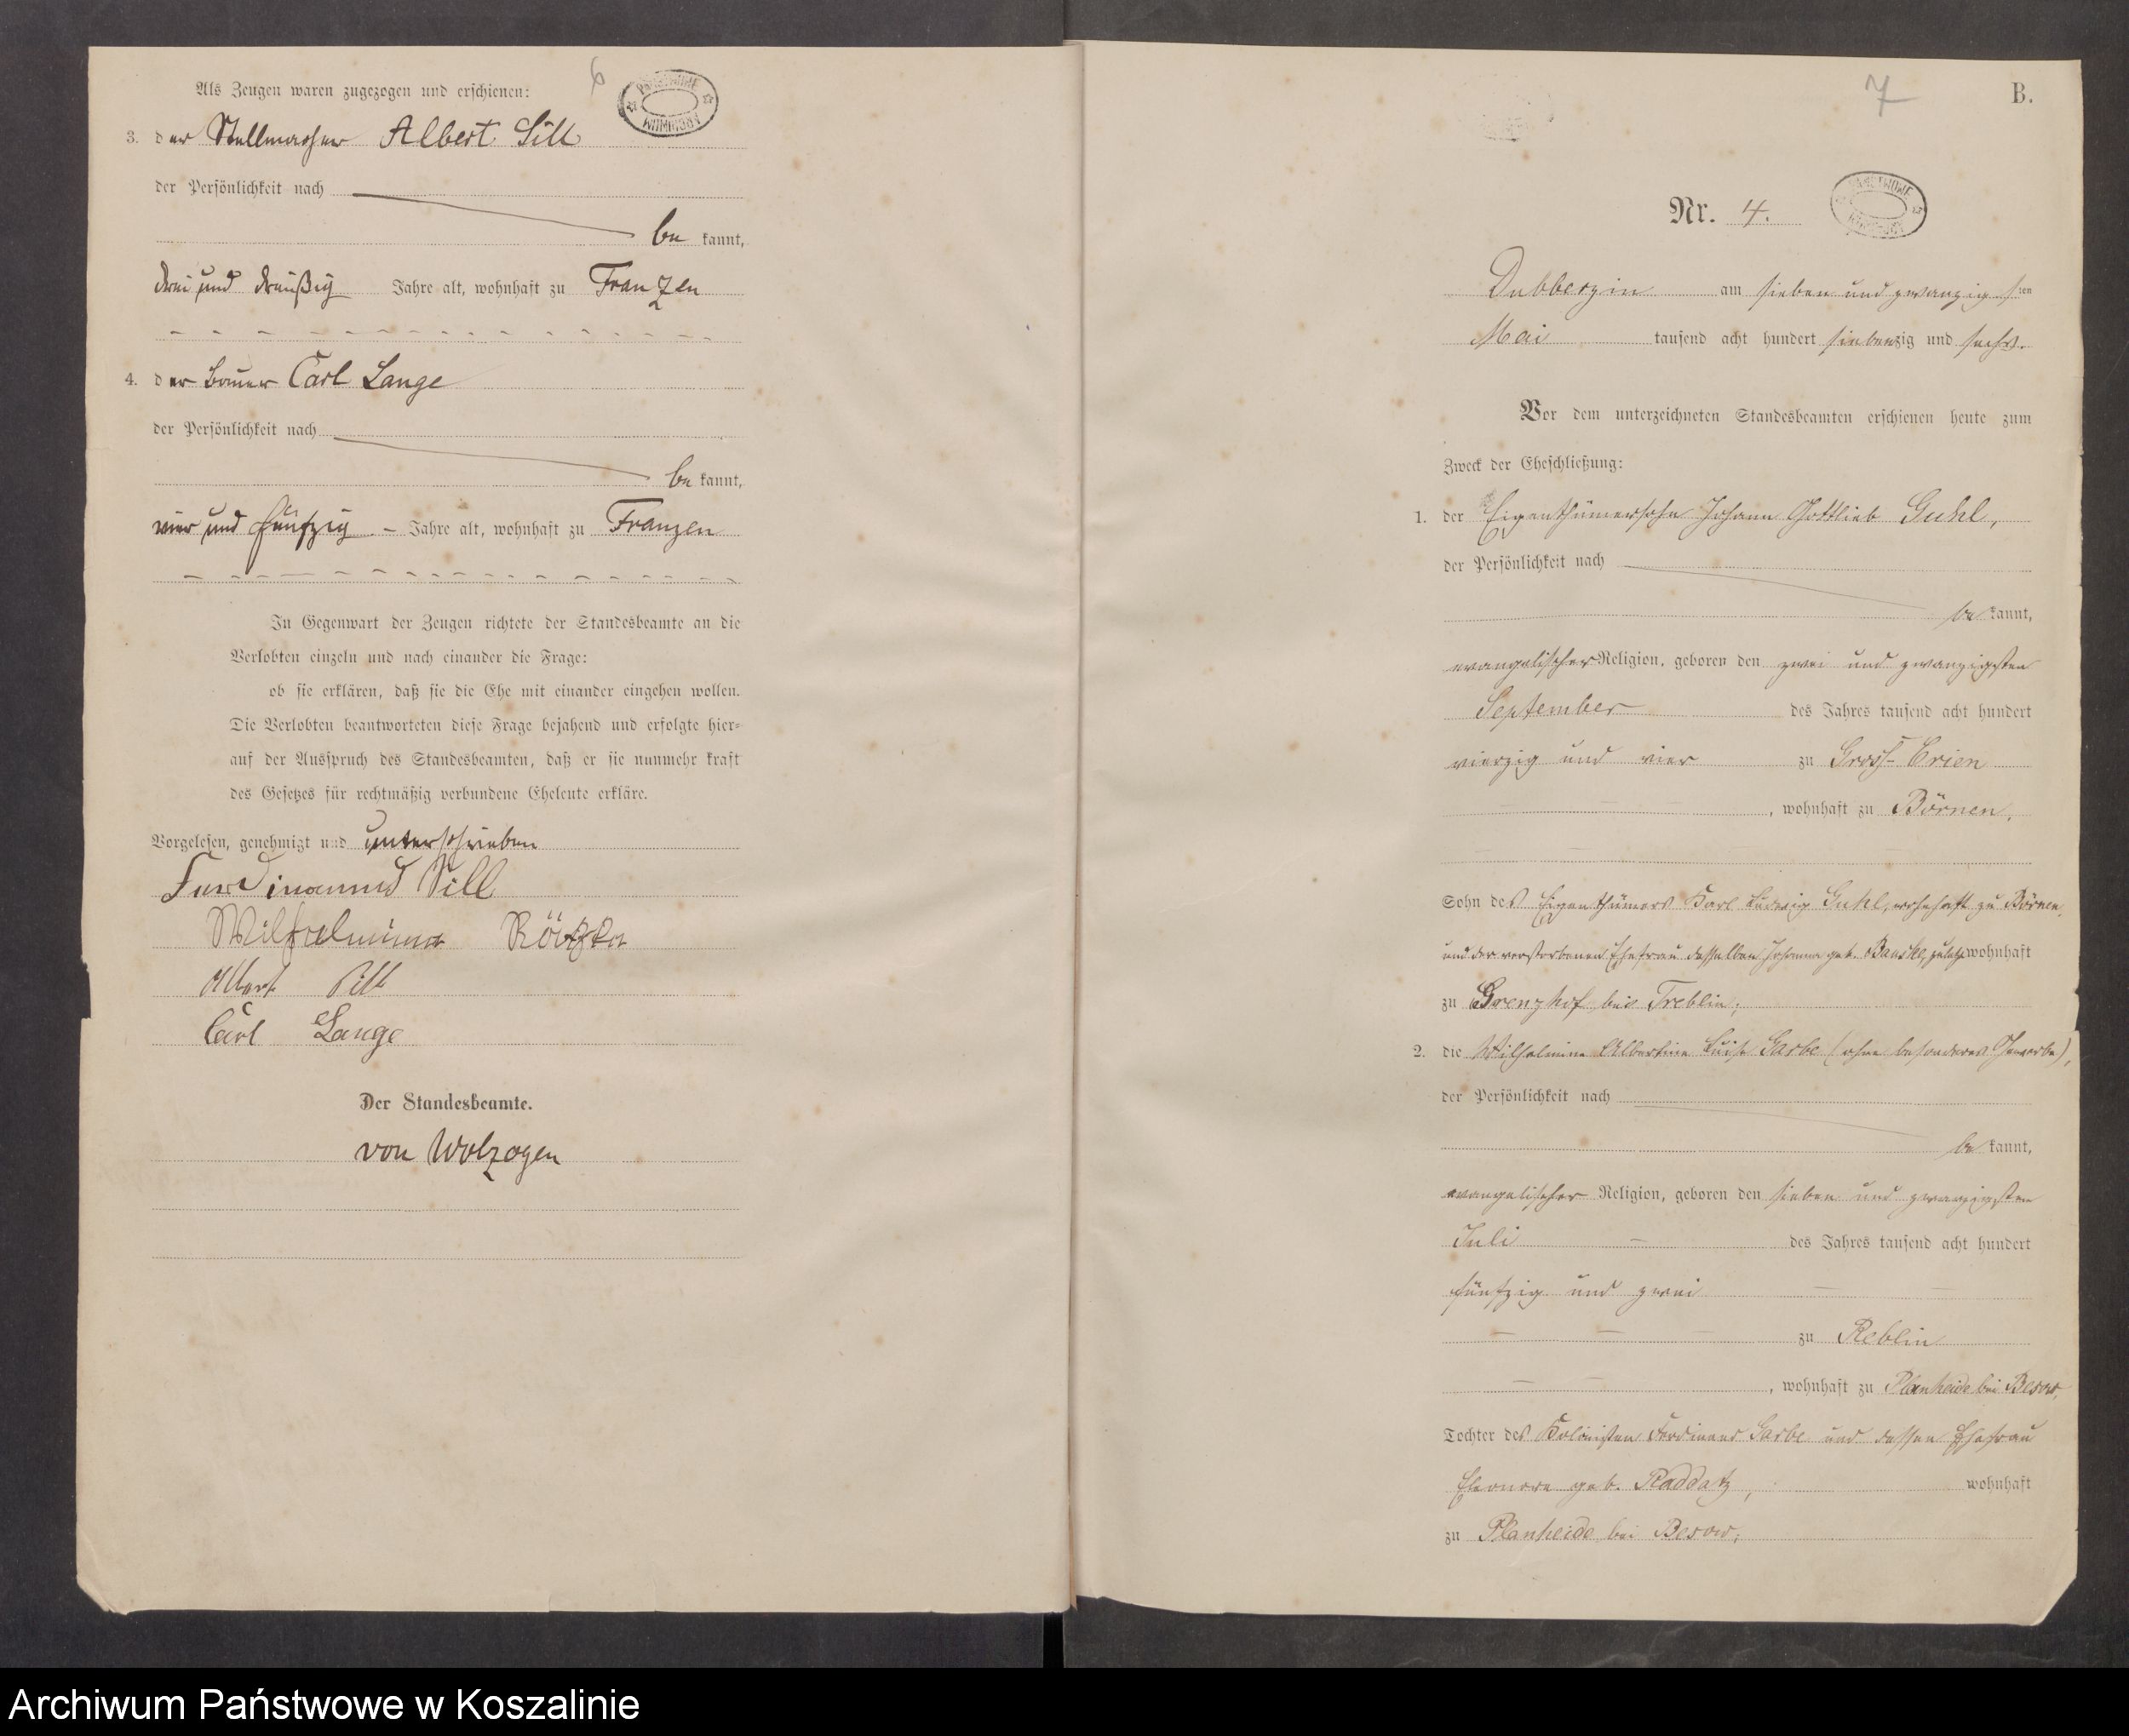 6
Als Zeugen waren zugezogen und erschienen:
PAŃSTWOWE ARCHIWUM
3. der Stellmacher Albert Sill
der Persönlichkeit nach
be kannt,
drei und dreißig Jahre alt, wohnhaft zu Franzen
4. der Bauer Carl Lange
der Persönlichkeit nach
be kannt,
vier und fünfzig - Jahre alt, wohnhaft zu Franzen
In Gegenwart der Zeugen richtete der Standesbeamte an die
Verlobten einzeln und nach einander die Frage:
ob sie erklären, daß sie die Ehe mit einander eingehen wollen.
Die Verlobten beantworteten diese Frage bejahend und erfolgte hier-
auf der Ausspruch des Standesbeamten, daß er sie nunmehr kraft
des Gesetzes für rechtmäßig verbundene Eheleute erkläre.
Vorgelesen, genehmigt und unterschrieben
Ferdinannd Sill
Wilhelmine
Albert Sill
Carl Lange
Der Standesbeamte.
von Wolzogen
7
B.
Nr. 4.
Dubberzin am sieben und zwanzigsten
Mai tausend acht hundert siebenzig und sechs.
Vor dem unterzeichneten Standesbeamten erschienen heute zum
Zweck der Eheschließung:
1. der Eigenthümersohn Johann Gottlieb Guhl,
der Persönlichkeit nach
be kannt,
evangelischer Religion, geboren den zwei und zwanzigsten
September des Jahres tausend acht hundert
vierzig und vier zu Gross-Crien
, wohnhaft zu Börnen,
Sohn des Eigenthümers Karl Ludwig Guhl, wohnhaft zu Börnen,
und der verstorbenen Ehefrau desselben Johanna geb. zuletzt wohnhaft
zu Grenzhof bei Treblin;
2. die Wilhelmine Albertine Luise Garbe (ohne besonderes Gewerbe),
der Persönlichkeit nach
be kannt,
evangelischer Religion, geboren den sieben und zwanzigsten
Juli - des Jahres tausend acht hundert
fünfzig und zwei
zu Reblin
, wohnhaft zu Planheide bei Besow,
Tochter des Kolonisten Ferdinand Garbe und dessen Ehefrau
Eleonore geb. Raddatz, wohnhaft
zu Planheide bei Besow;
Archiwum Państwowe w Koszalinie